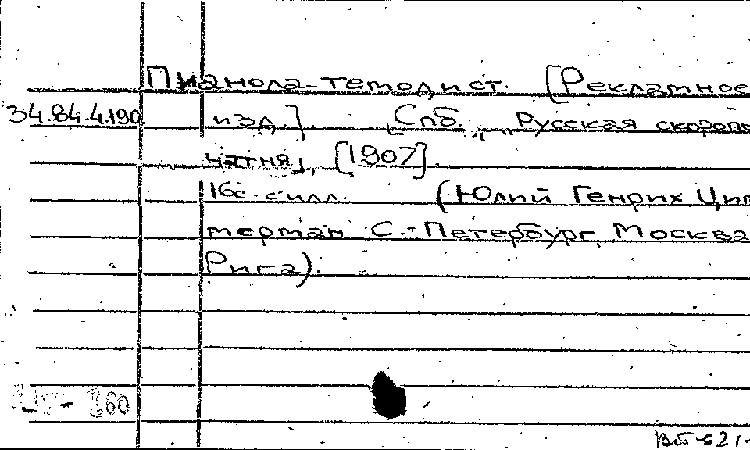 Пианола-темодист. [Рекламное
34.84.4.190 изд.] Спб. „Русская скоропе
чатня", [1907].
16 с. илл. (Юлий Генрих Цим
мерман С.-Петербург, Москва
Рига).
160